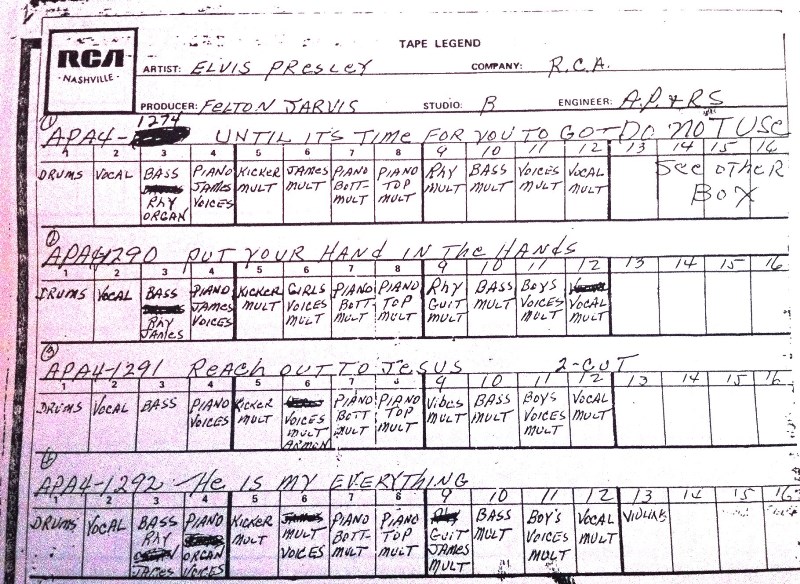 RCA
NASHVILLE
TAPE LEGEND
ARTIST: ELVIS PRESLEY COMPANY: R.C.A.
PRODUCER: FELTON JARVIS STUDIO: B ENGINEER: A.P. & RS
1 APA4-1274 UNTIL IT'S TIME FOR YOU TO GO DO NOT USE
1 2 3 4 5 6 7 8 9 10 11 12 13 14 15 16
DRUMS VOCAL BASS PIANO KICKER JAMES PIANO PIANO RHY BASS VOICES VOCAL See other
RHY JAMES MULT MULT BOTT- TOP MULT MULT MULT MULT BOX
ORGAN VOICES MULT MULT
2 APA4-1290 PUT YOUR HAND IN THE HANDS
1 2 3 4 5 6 7 8 9 10 11 12 13 14 15 16
DRUMS VOCAL BASS PIANO KICKER GIRLS PIANO PIANO RHY BASS BOYS
RHY JAMES MULT VOICES BOTT TOP GUIT MULT VOICES VOCAL
JAMES VOICES MULT MULT MULT MULT MULT MULT
3 APA4-1291 REACH OUT TO JESUS 2-CUT
1 2 3 4 5 6 7 8 9 10 11 12 13 14 15 16
DRUMS VOCAL BASS PIANO KICKER PIANO PIANO Vibes BASS BOYS VOCAL
VOICES MULT VOICES BOTT TOP MULT MULT VOICES MULT
MULT MULT MULT MULT
APA4-1292 He IS MY EVERYTHING
1 2 3 4 5 6 7 8 9 10 11 12 13 14 15 16
DRUMS VOCAL BASS PIANO KICKER PIANO PIANO BASS BOY'S VOCAL VIOLINS
RHY MULT MULT BOTT- TOP GUIT MULT VOICES MULT
ORGAN VOICES MULT MULT JAMES MULT
JAMES VOICES MULT